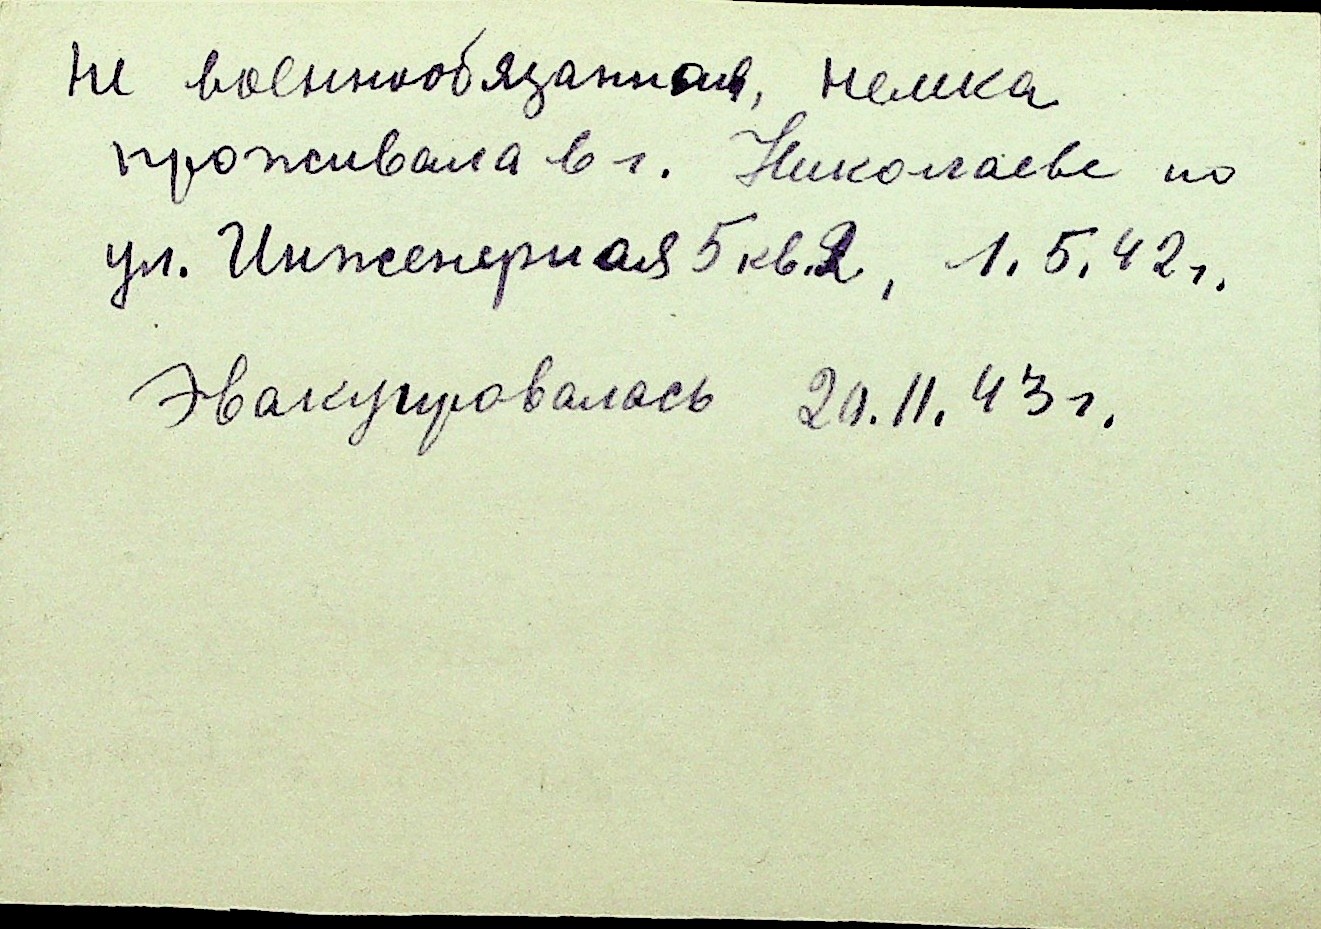 Не военнообязанная, немка
проживала в г. Николаеве по
ул. Инженерная 5 кв.2, 1.5.42г.
Эвакуировалась 20.11.43г.